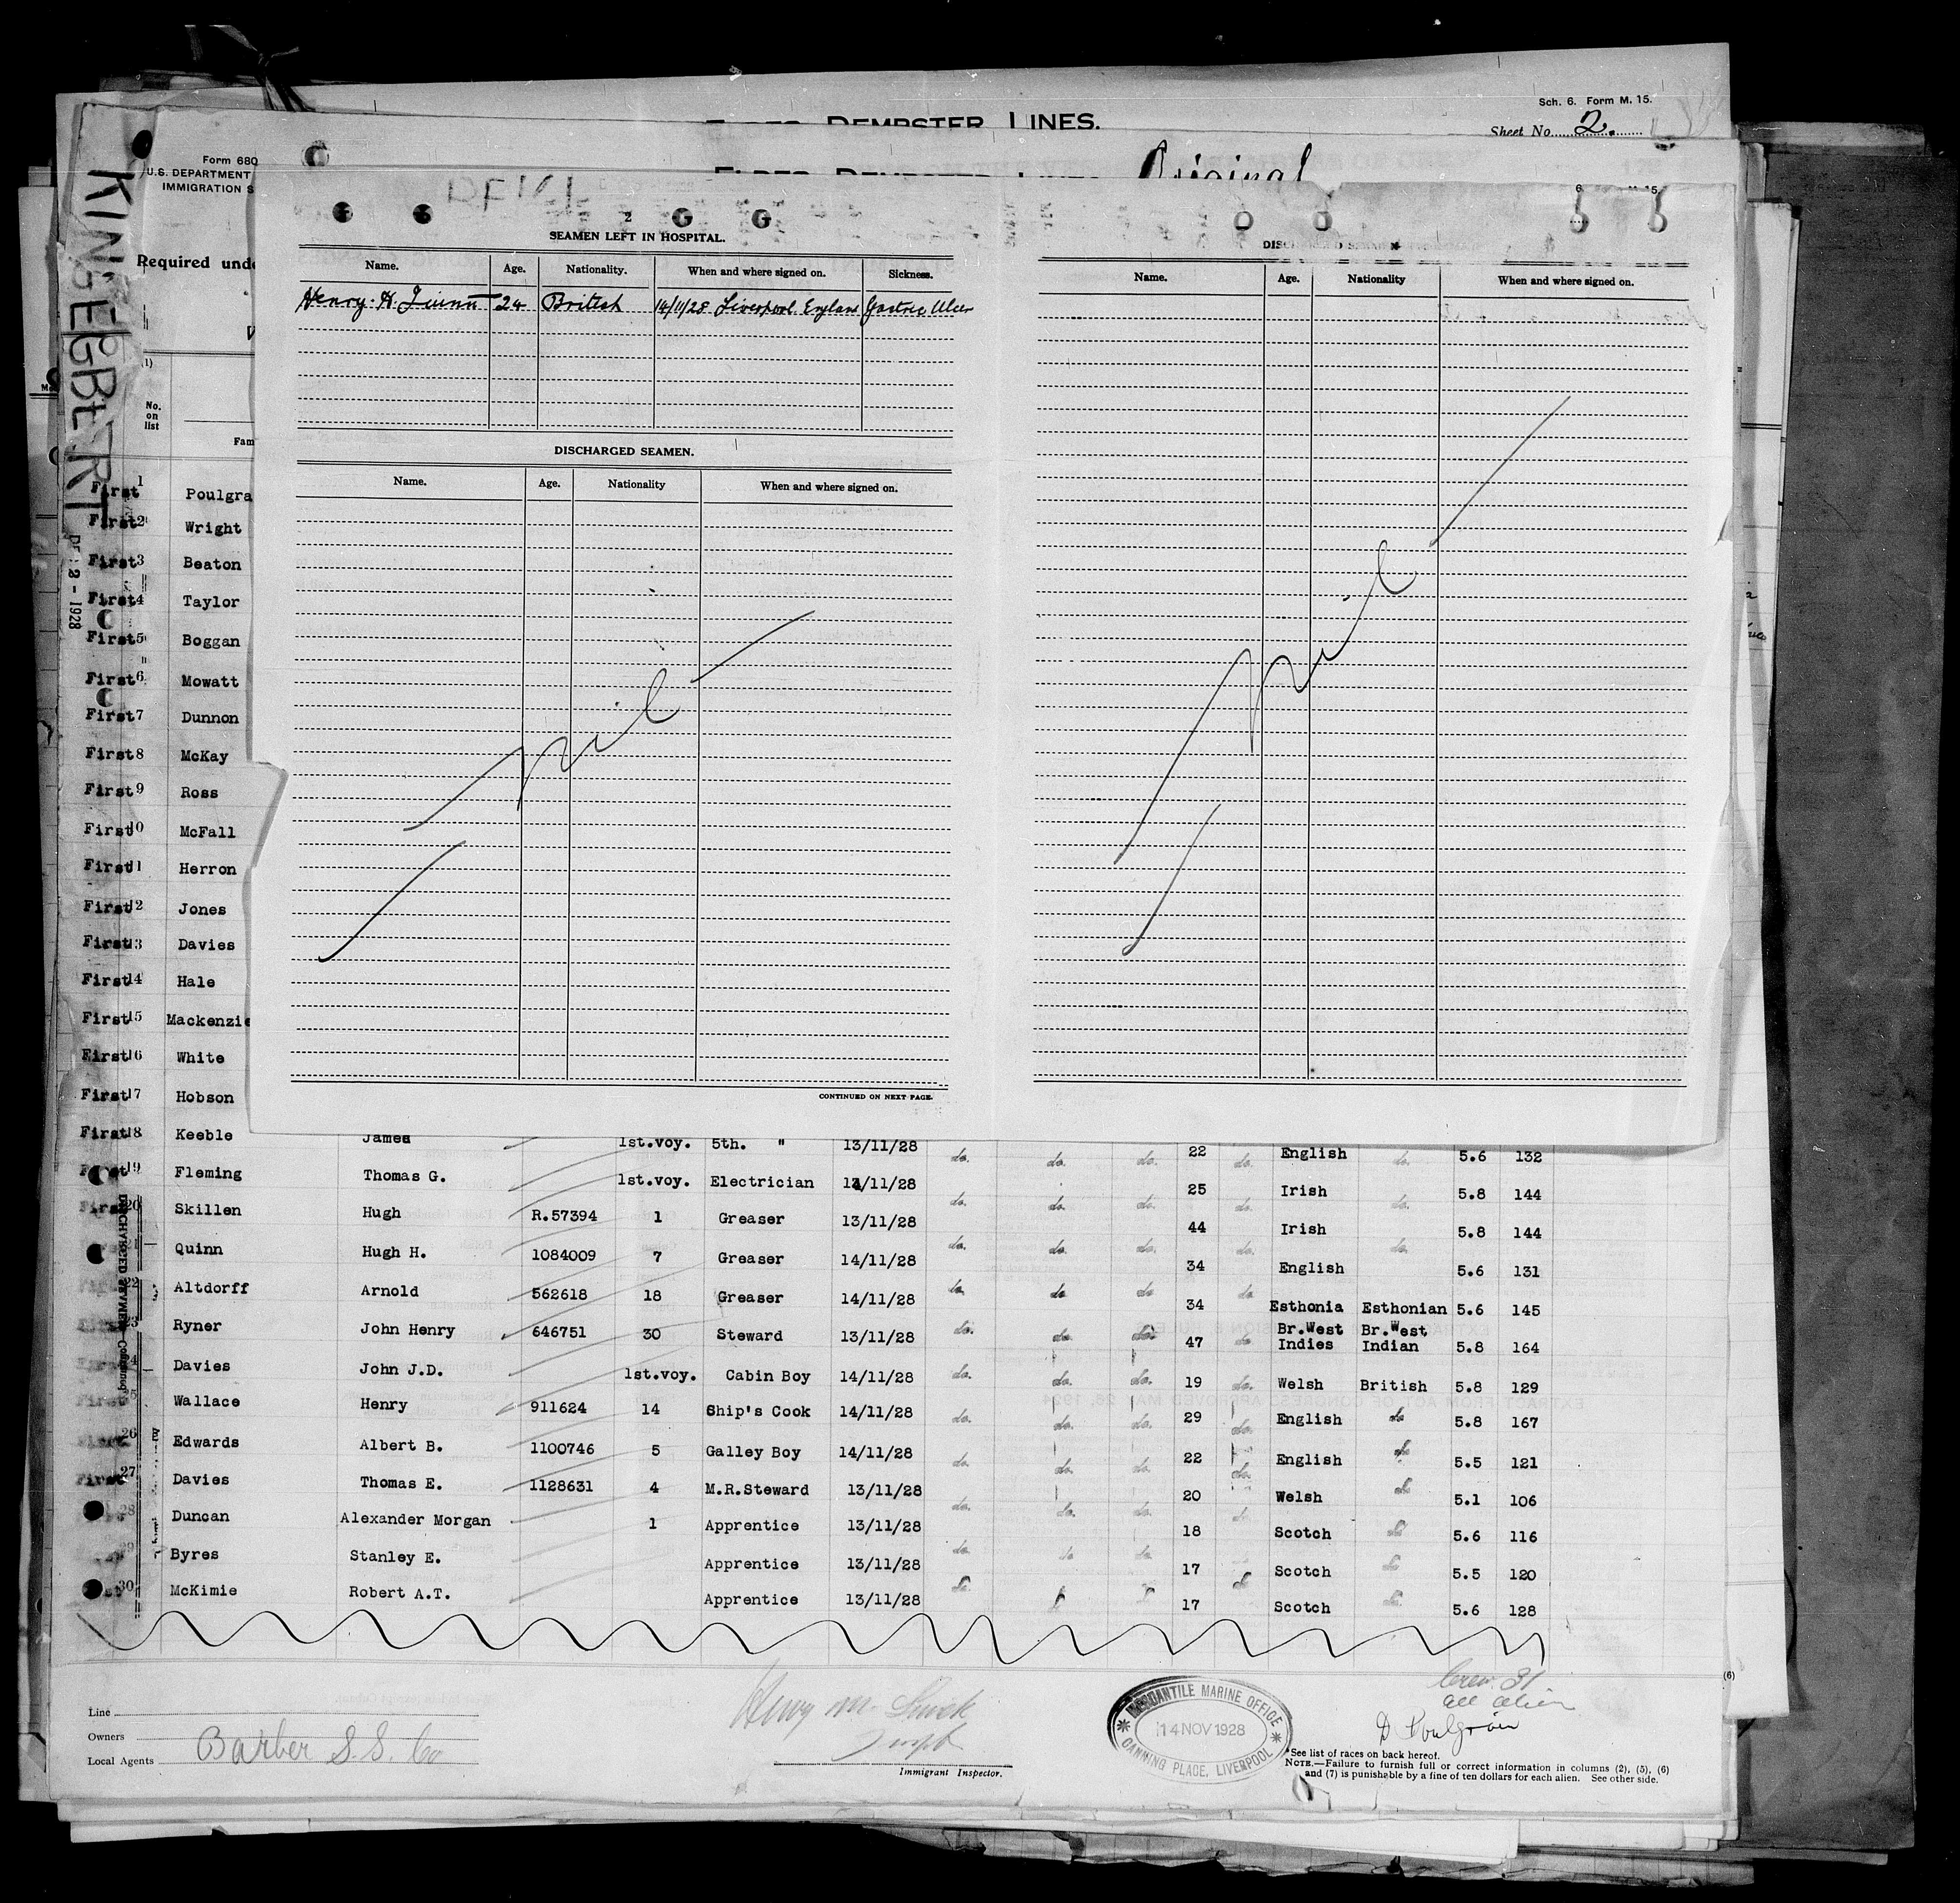 Sch. 6. Form M. 15.
DEMPSTER LINES.
Sheet No. 2.
Original
Form 680
U.S. DEPARTMENT
IMMIGRATION S
KINGEGBERT
Required unde
2
SEAMEN LEFT IN HOSPITAL.
Name. Age. Nationality. When and where signed on. Sickness.
Henry. H. Quinn 24 British 14/11/28 Liverpool England Gastric Ulcer
DISCHARGED SEAMEN.
Name. Age. Nationality When and where signed on.
nil
CONTINUED ON NEXT PAGE.
Name. Age. Nationality When and where signed on.
nil
(1)
No. on list
Fam
2 - 1928
First 1 Poulgra
First 2 Wright
First 3 Beaton
First 4 Taylor
First 5 Boggan
First 6 Mowatt
First 7 Dunnon
First 8 McKay
First 9 Ross
First 10 McFall
First 11 Herron
First 12 Jones
First 13 Davies
First 14 Hale
First 15 Mackenzie
First 16 White
First 17 Hobson
First 18 Keeble James 1st.voy. 5th. " 13/11/28 do. do. do. 22 do. English do. 5.6 132
19 Fleming Thomas G. 1st.voy. Electrician 13/11/28 do. do. do. 25 do. Irish do. 5.8 144
20 Skillen Hugh R.57394 1 Greaser 13/11/28 do. do. do. 44 do. Irish do. 5.8 144
Quinn Hugh H. 1084009 7 Greaser 14/11/28 do. do. do. 34 do. English 5.6 131
22 Altdorff Arnold 562618 18 Greaser 14/11/28 do. do do 34 do Esthonia Esthonian 5.6 145
23 Ryner John Henry 646751 30 Steward 13/11/28 do. do. do. 47 do Br.West Indies Br.West Indian 5.8 164
Davies John J.D. 1st.voy. Cabin Boy 14/11/28 do. do. do. 19 do. Welsh British 5.8 129
25 Wallace Henry 911624 14 Ship's Cook 14/11/28 do. do. do. 29 do. English do 5.8 167
26 Edwards Albert B. 1100746 5 Galley Boy 14/11/28 do. do. do. 22 do. English do 5.5 121
First 27 Davies Thomas E. 1128631 4 M.R.Steward 13/11/28 do. do. do. 20 Welsh do 5.1 106
28 Duncan Alexander Morgan 1 Apprentice 13/11/28 18 do. Scotch do 5.6 116
29 Byres Stanley E. Apprentice 13/11/28 do do. 17 do Scotch do 5.5 120
30 McKimie Robert A.T. Apprentice 13/11/28 17 Scotch do. 5.6 128
DISCHARGED SEAMEN—Continued
(6)
Line
Owners
Local Agents Barber S.S. Co
Immigrant Inspector.
MERCANTILE MARINE OFFICE
14 NOV 1928
CANNING PLACE, LIVERPOOL
Crew 31
all alien
*See list of races on back hereof.
NOTE.—Failure to furnish full or correct information in columns (2), (5), (6)
and (7) is punishable by a fine of ten dollars for each alien. See other side.